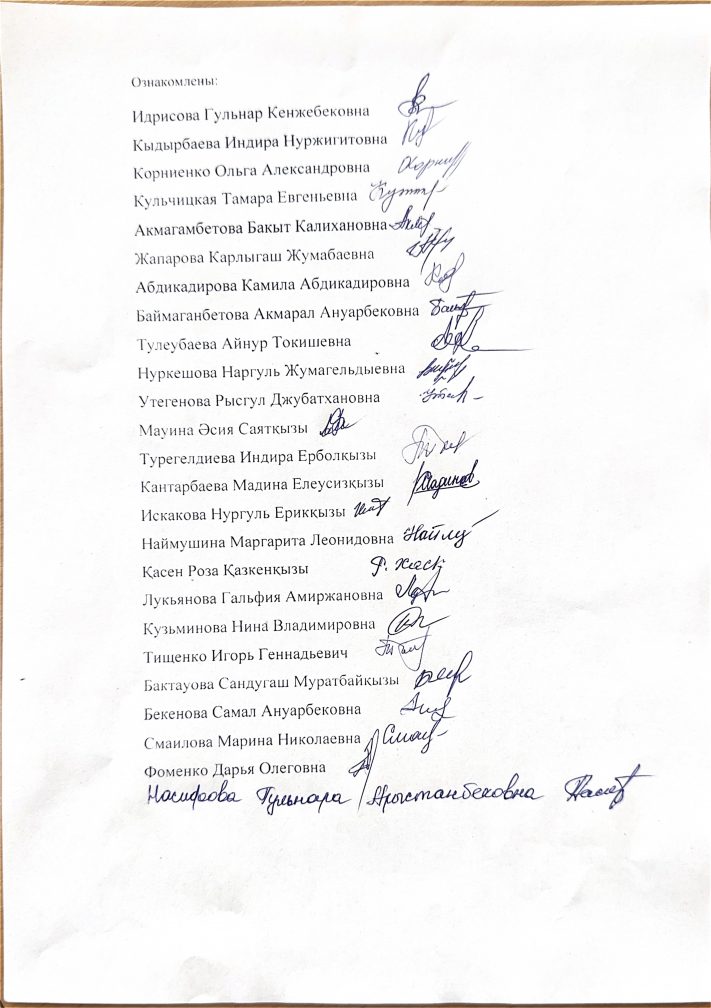 Ознакомлены:
Идрисова Гульнар Кенжебековна
Кыдырбаева Индира Нуржигитовна
Корниенко Ольга Александровна
Кульчицкая Тамара Евгеньевна
Акмагамбетова Бакыт Калихановна
Жапарова Карлыгаш Жумабаевна
Абдикадирова Камила Абдикадировна
Баймаганбетова Акмарал Ануарбековна
Тулеубаева Айнур Токишевна
Нуркешова Наргуль Жумагельдыевна
Утегенова Рысгул Джубатхановна
Мауина Әсия Саятқызы
Турегелдиева Индира Ерболқызы
Кантарбаева Мадина Елеусизқызы
Искакова Нургуль Ериққызы
Наймушина Маргарита Леонидовна
Қасен Роза Қазкенқызы
Лукьянова Гальфия Амиржановна
Кузьминова Нина Владимировна
Тищенко Игорь Геннадьевич
Бактауова Сандугаш Муратбайқызы
Бекенова Самал Ануарбековна
Смаилова Марина Николаевна
Фоменко Дарья Олеговна
Гульнара Арыстанбековна